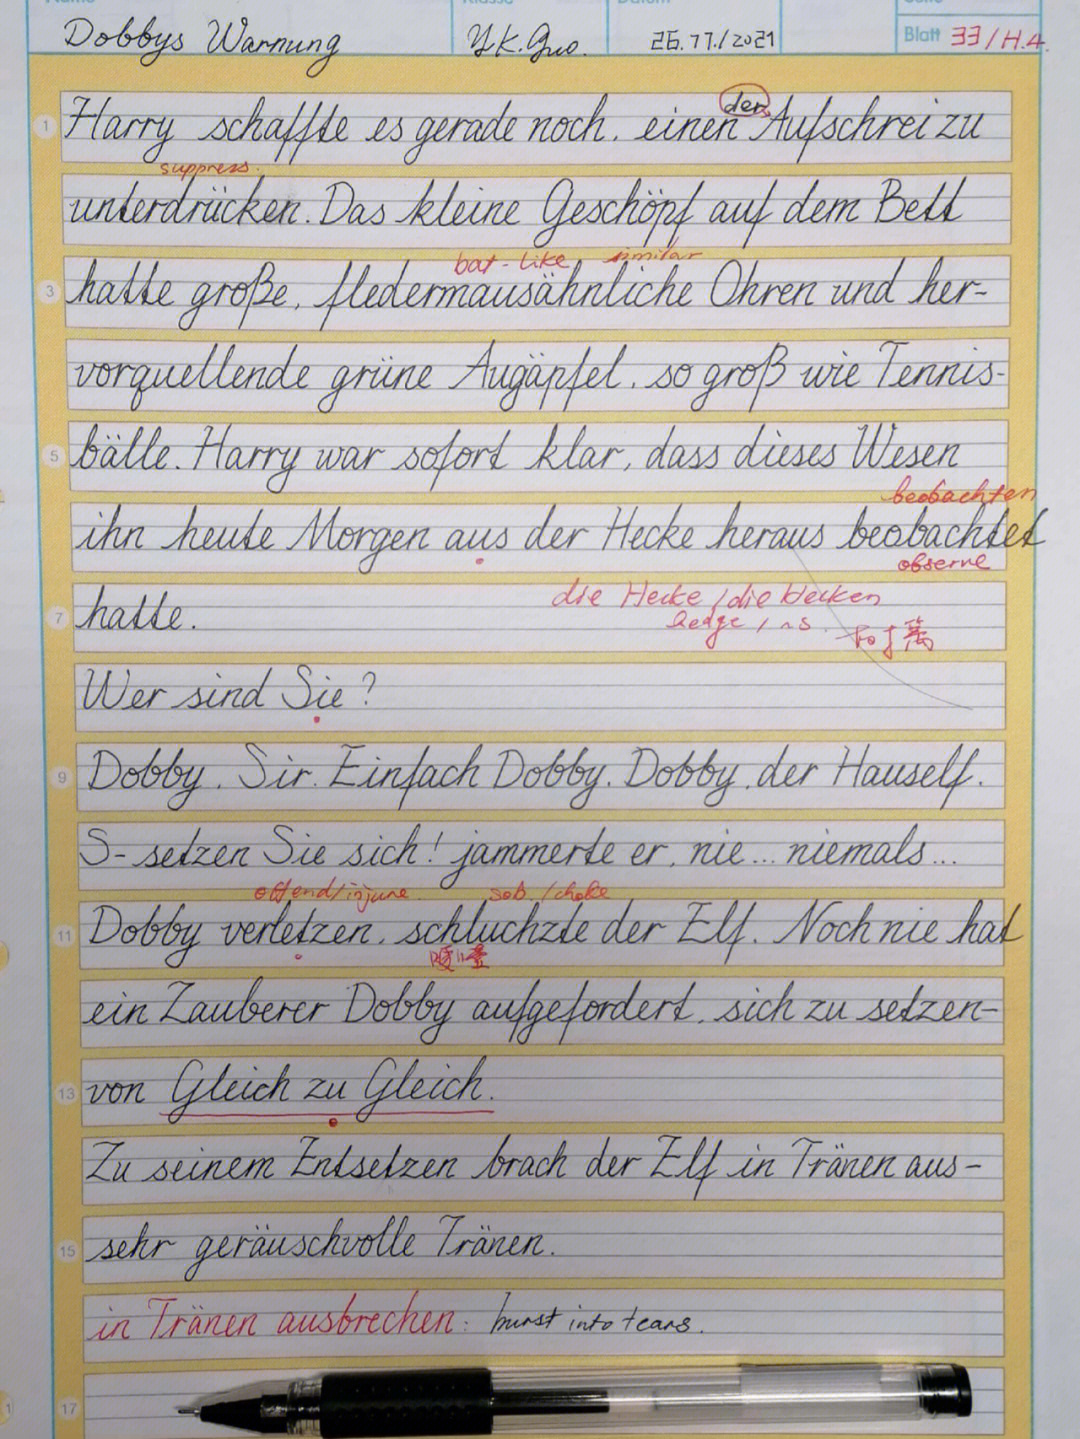 Dobbys Warnung Y.K.Guo. 26.11./2021 Blatt 33/H.4.
der
1 Harry schaffte es gerade noch, einen Aufschrei zu
suppress.
unterdrücken. Das kleine Geschöpf auf dem Bett
bat-like similar
3 hatte große, fledermausähnliche Ohren und her-
vorquellende grüne Augäpfel, so groß wie Tennis-
5 bälle. Harry war sofort klar, dass dieses Wesen
beobachten
ihn heute Morgen aus der Hecke heraus beobachtet
observe
7 hatte.
die Hecke, die Hecken
hedge, ~s.
Wer sind Sie?
9 Dobby, Sir. Einfach Dobby. Dobby, der Hauself.
S-setzen Sie sich! jammerte er, nie... niemals...
offend/injure. sob/choke
11 Dobby verletzen, schluchzte der Elf. Noch nie hat
ein Zauberer Dobby aufgefordert, sich zu setzen-
13 von Gleich zu Gleich.
Zu seinem Entsetzen brach der Elf in Tränen aus-
15 sehr geräuschvolle Tränen.
in Tränen ausbrechen: burst into tears.
17